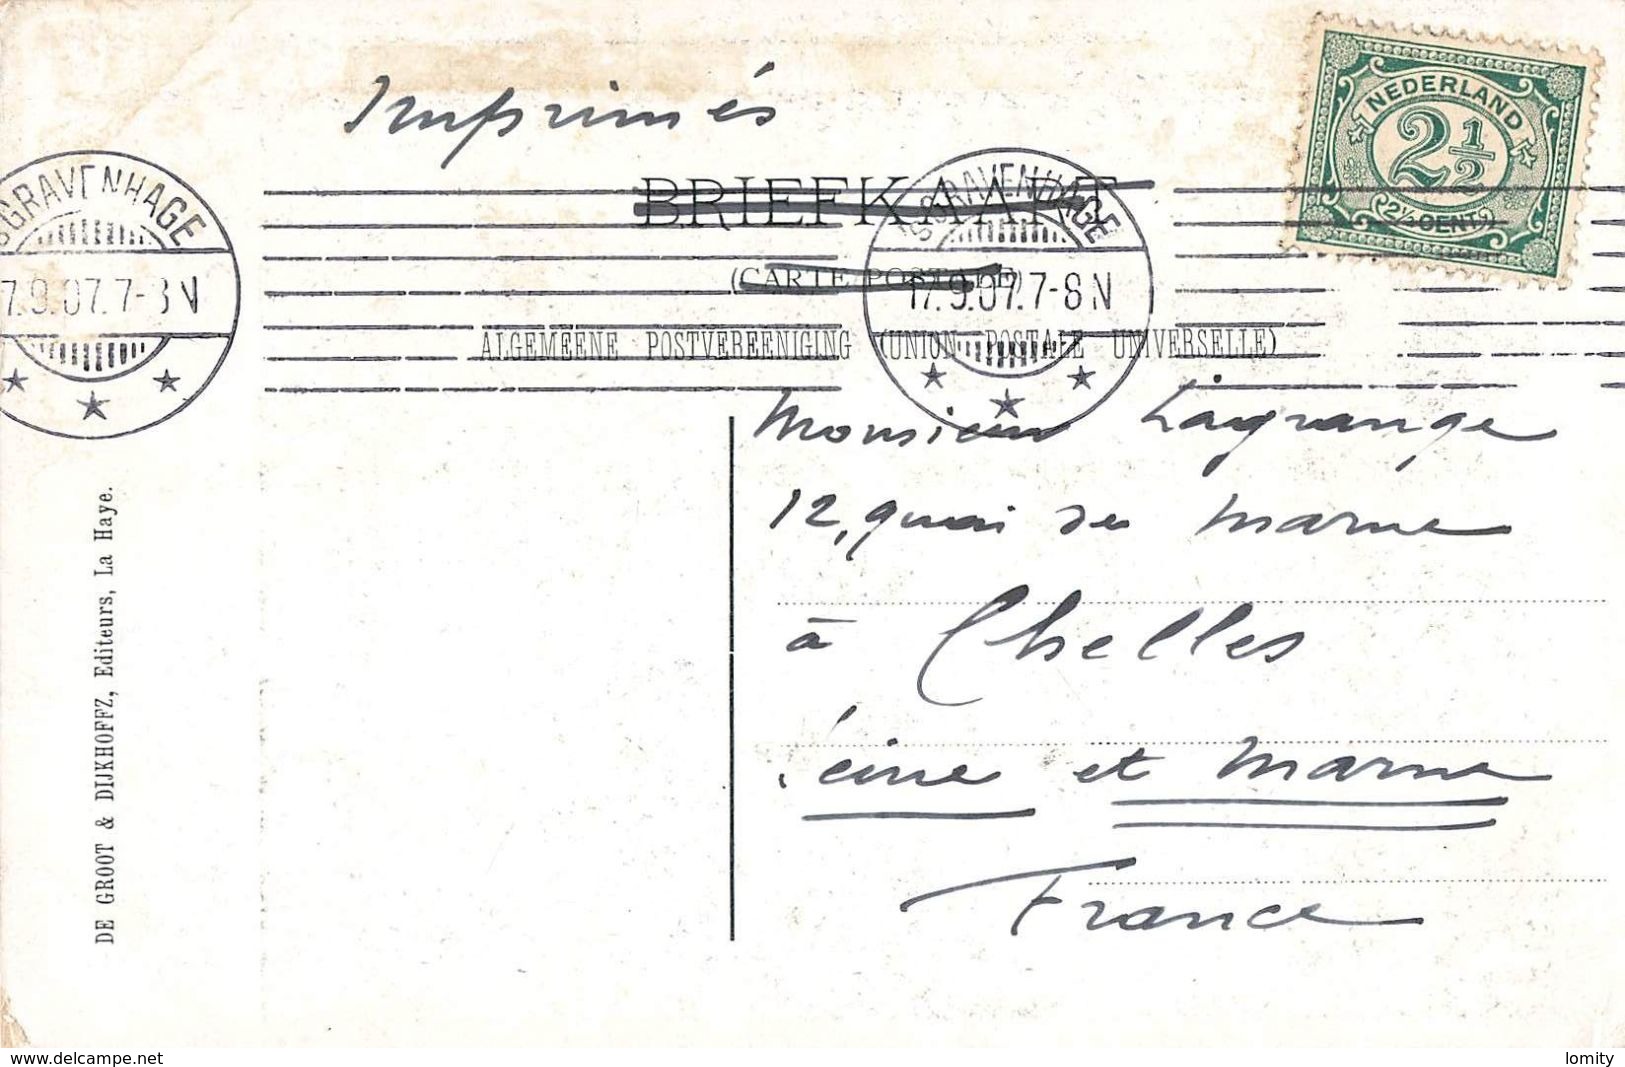 Imprimés
NEDERLAND
2½
2½ CENT
BRIEFKAART
(CARTE POSTALE)
'S GRAVENHAGE
17.9.07.7-8 N
'S GRAVENHAGE
7.9.07.7-8 N
ALGEMEENE POSTVEREENIGING (UNION POSTALE UNIVERSELLE)
Monsieur Lagrange
12, quai de Marne
à Chelles
Seine et Marne
France
DE GROOT & DIJKHOFFZ, Editeurs, La Haye.
www.delcampe.net
lomity